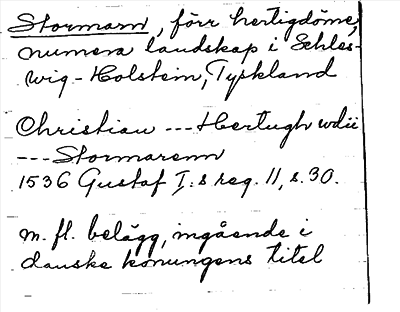 Stormarn, förr hertigdöme,
numera landskap i Schles-
wig-Holstein, Tyskland
Christian --- Hertugh wdii
--- Stormarenn
1536 Gustaf I:s reg. 11, s. 30.
m. fl. belägg, ingående i
danske konungens titel